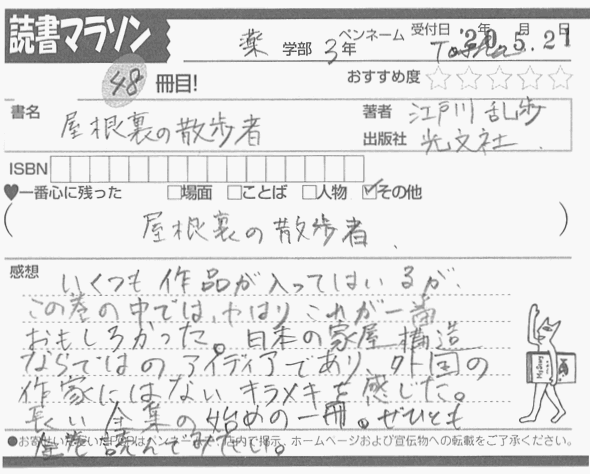 読書マラソン
薬 学部 3年 ペンネーム 受付日 年 月 日
'20.5.21
48 冊目! おすすめ度 ☆☆☆☆☆
書名 屋根裏の散歩者 著者 江戸川乱歩
出版社 光文社.
ISBN
♥一番心に残った □場面 □ことば □人物 ☑その他
( 屋根裏の散歩者. )
感想 いくつも作品が入ってはいるが、
この巻の中では、やはりこれが一番
おもしろかった。日本の家屋構造
ならではのアイディアであり、外国の
作家にはないキラメキを感じた。
長い全集の始めの一冊。ぜひとも
全巻読んでみたい。
●お寄せいただいたPOPはペンネームで店内で掲示、ホームページおよび宣伝物への転載をご了承ください。